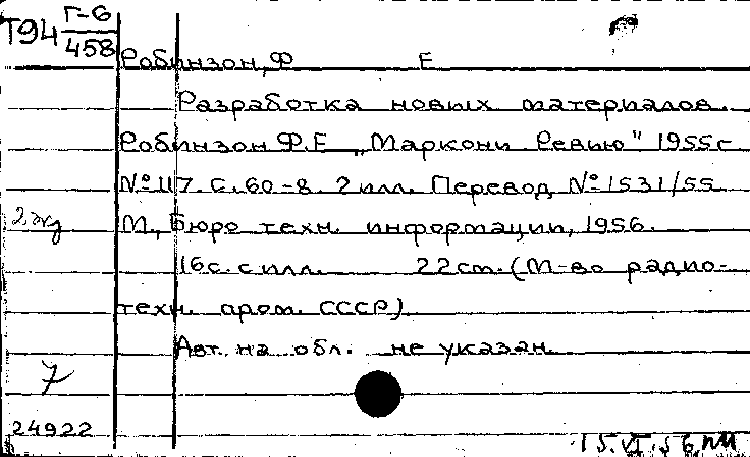 Т94 Г-6
458
Робинзон, Ф Е
Разработка новых материалов.
Робинзон Ф.Е „Маркони Ревию" 1955г
№ 117. С. 60-8. 2 илл. Перевод № 1531/55
2 экз М., Бюро техн. информации, 1956.
16с. с илл. 22 см. (М-во радио-
техн. пром. СССР)
Авт. на обл. не указан.
7
24922
15.VI.56